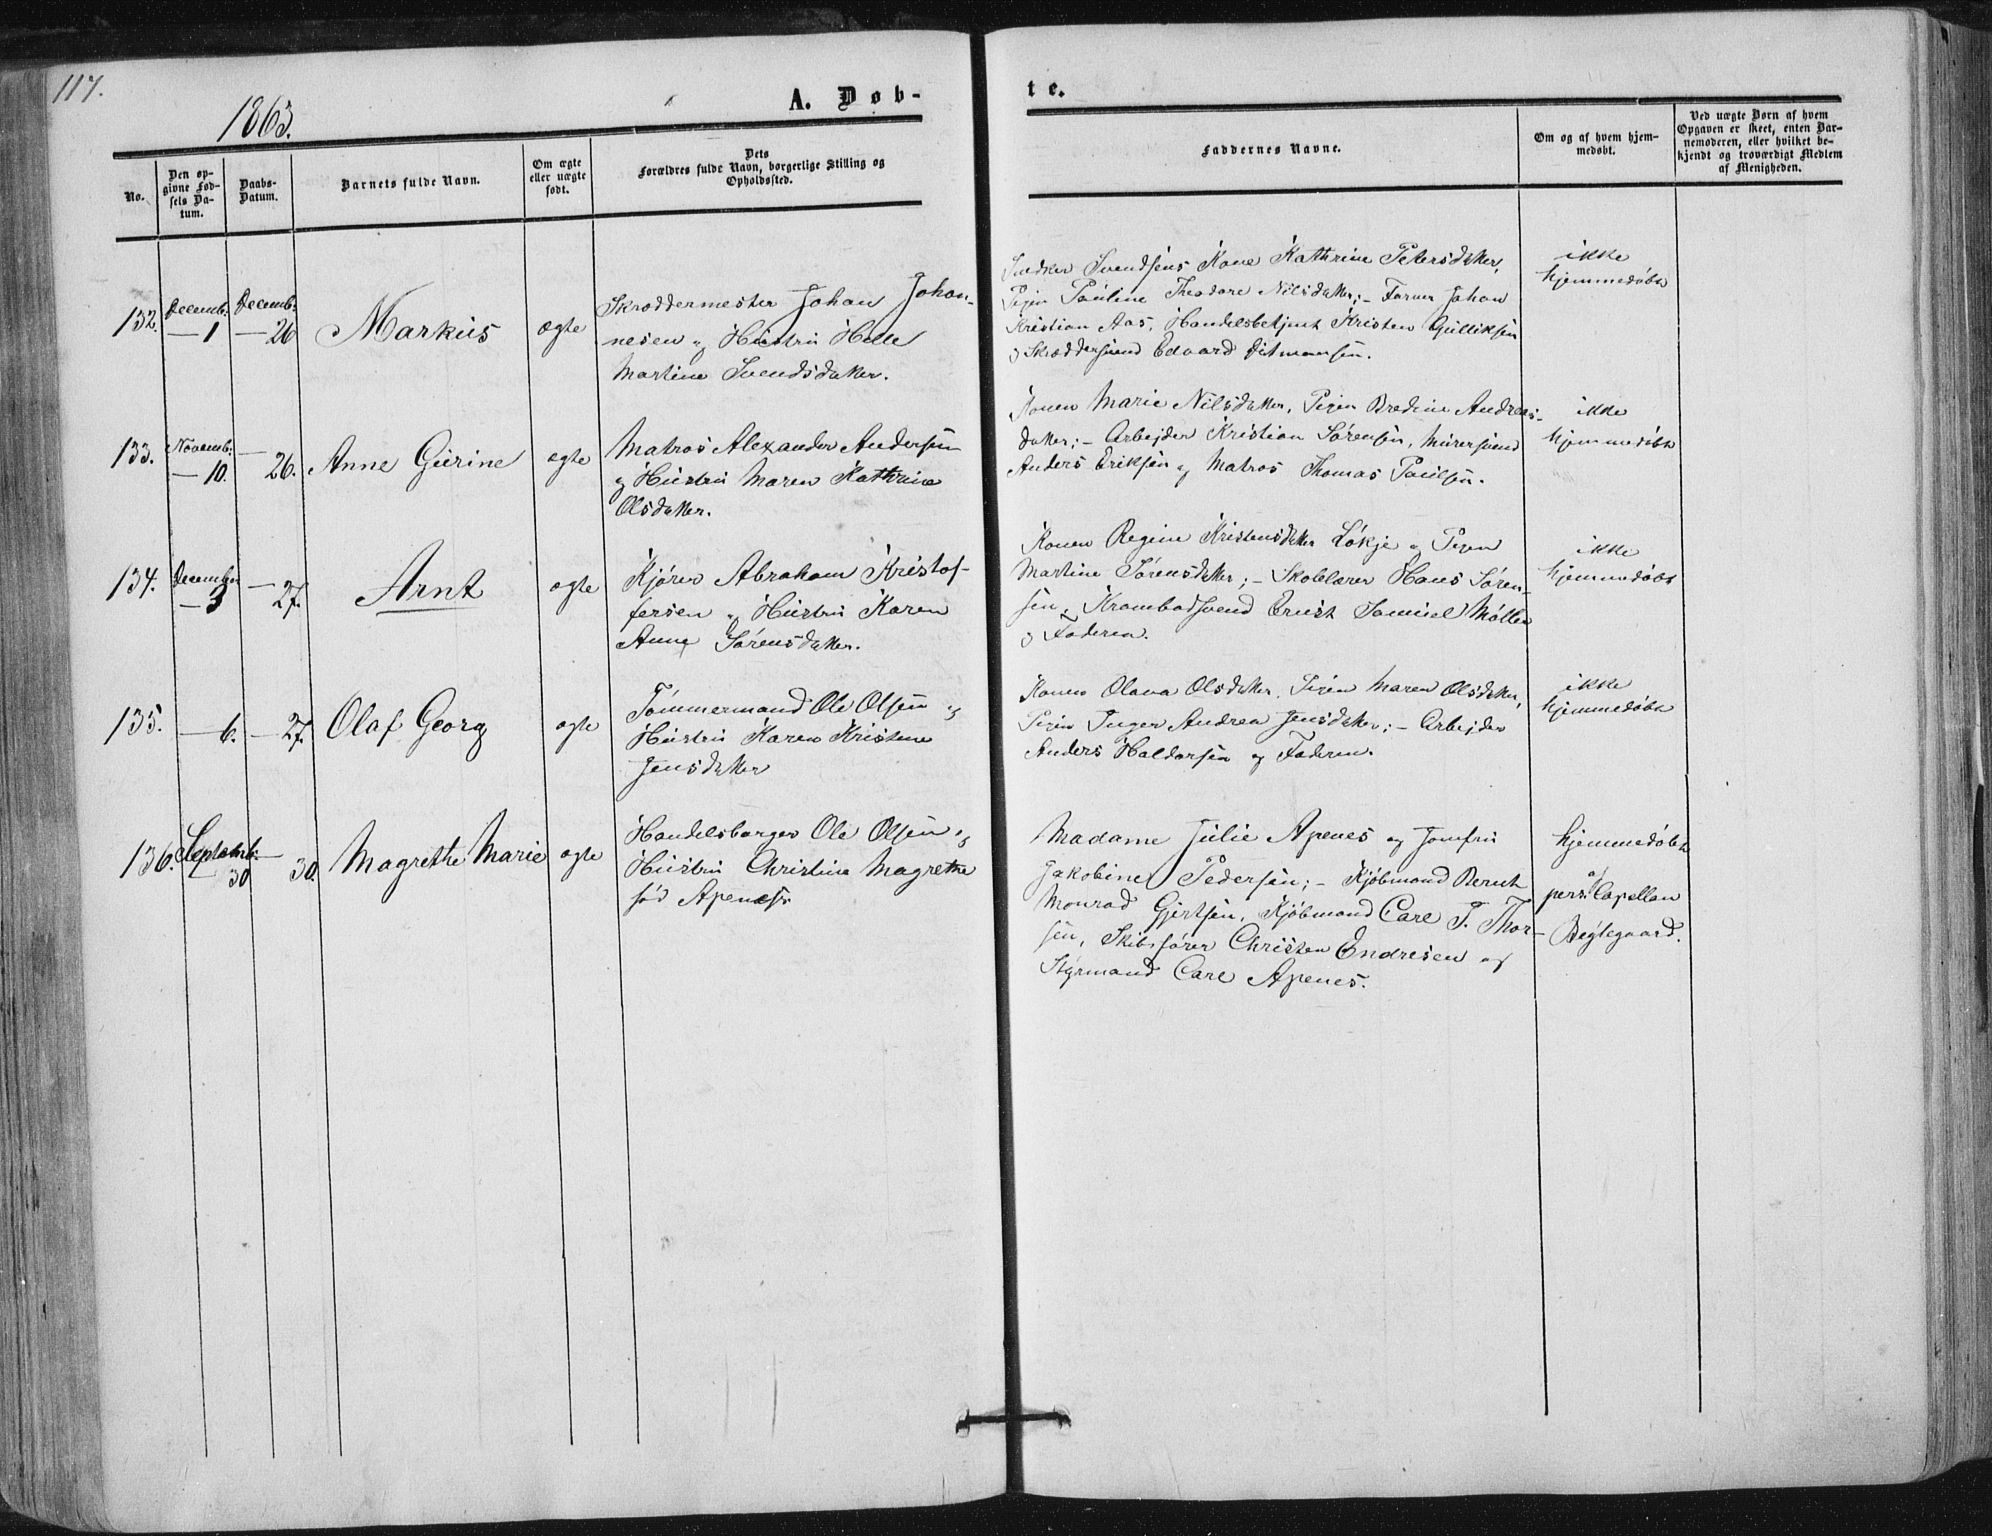 117.
1863.
A. Døb-
te.
No.
Den op-
givne Fød-
sels Da-
tum.
Daabs-
Datum.
Barnets fulde Navn.
Om ægte
eller uægte
født.
Dets
Forældres fulde Navn, borgerlige Stilling og
Opholdssted.
Faddernes Navne.
Om og af hvem hjem-
medøbt.
Ved uægte Børn af hvem
Opgaven er skeet, enten Bar-
nemoderen, eller hvilket be-
kjendt og troværdigt Medlem
af Menigheden.
132.
Decemb.
— 1
Decemb.
— 26
Markus
ægte
Skræddermester Johan Johan-
nesen og Hustru Helle
Martine Svendsdatter.
Snedker Svendsens Kone Kathrine Petersdatter,
Pigen Pauline Theodore Nilsdatter; - Farver Johan
Kristian Aas, Handelsbetjent Kristen Gulliksen
og Skræddersvend Edvard Ditmansen.
ikke
hjemmedøbt
133.
Novemb.
— 10.
— 26.
Anne Gurine
ægte
Matros Alexander Andersen
og Hustru Maren Kathrine
Olsdatter.
Konen Marie Nilsdatter, Pigen Bredine Andreas-
datter; - Arbejder Kristian Sørensen, Murersvend
Anders Eriksen og Matros Thomas Paulsen.
ikke
hjemmedøbt
134.
December
— 3
— 27.
Arnt
ægte
Kjører Abraham Kristof-
fersen og Hustru Karen
Anne Sørensdatter.
Konen Regine Kristensdatter Løkje og Pigen
Martine Sørensdatter; - Skolelærer Hans Søren-
sen, Krambodsvend Ernst Samuel Møller
og Faderen.
ikke
hjemmedøbt
135.
— 6.
— 27.
Olaf Georg
ægte
Tømmermand Ole Olsen og
Hustru Karen Kristine
Jensdatter
Konen Olava Olsdatter, Pigen Maren Olsdatter,
Pigen Inger Andrea Jensdatter; - Arbejder
Anders Haldorsen og Faderen.
ikke
hjemmedøbt
136.
Septemb.
30
— 30.
Magrethe Marie
ægte
Handelsborger Ole Olsen og
Hustru Christine Magrethe
fød Apenes
Madame Julie Apenes og Jomfru
Jakobine Pedersen; - Kjøbmand Bernt
Monrad Gjertsen, Kjøbmand Carl P. Thor-
sen, Skibsfører Christen Endresen og
Styrmand Carl Apenes.
hjemmedøbt
af
pers. Capellan
Bøglegaard.